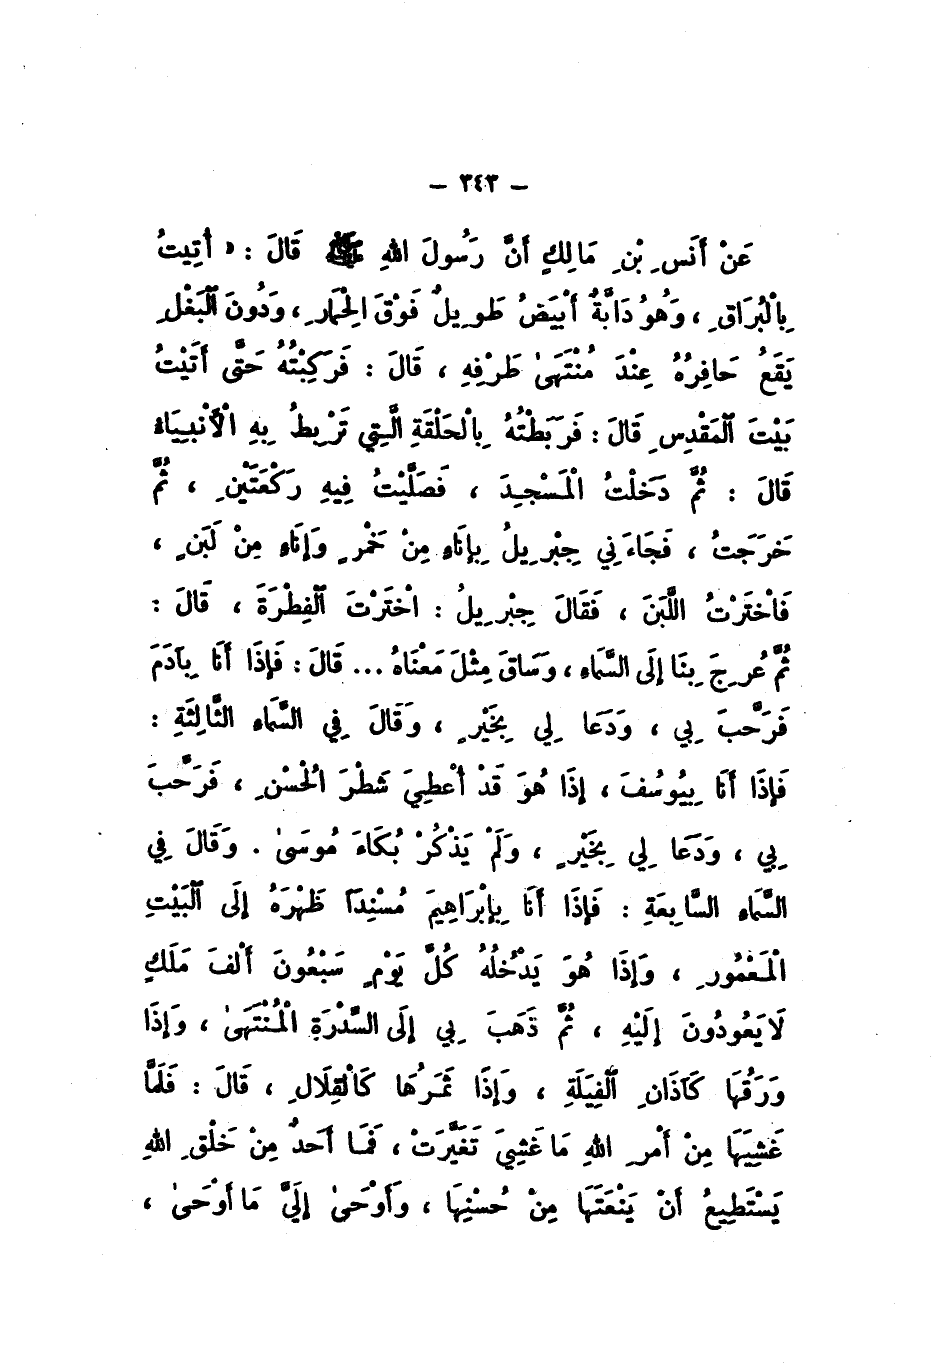 – ٣٤٣ –
عَنْ أَنَسِ بْنِ مَالِكٍ أَنَّ رَسُولَ اللهِ ﷺ قَالَ : « أُتِيتُ
بِالْبُرَاقِ ، وَهُوَ دَابَّةٌ أَبْيَضُ طَوِيلٌ فَوْقَ الْحِمَارِ ، وَدُونَ الْبَغْلِ
يَقَعُ حَافِرُهُ عِنْدَ مُنْتَهَىٰ طَرْفِهِ ، قَالَ : فَرَكِبْتُهُ حَتَّى أَتَيْتُ
بَيْتَ الْمَقْدِسِ قَالَ : فَرَبَطْتُهُ بِالْحَلْقَةِ الَّتِي تَرْبِطُ بِهِ الْأَنْبِيَاءُ
قَالَ : ثُمَّ دَخَلْتُ الْمَسْجِدَ ، فَصَلَّيْتُ فِيهِ رَكْعَتَيْنِ ، ثُمَّ
خَرَجْتُ ، فَجَاءَنِي جِبْرِيلُ بِإِنَاءٍ مِنْ خَمْرٍ وَإِنَاءٍ مِنْ لَبَنٍ ،
فَاخْتَرْتُ اللَّبَنَ ، فَقَالَ جِبْرِيلُ : اخْتَرْتَ الْفِطْرَةَ ، قَالَ :
ثُمَّ عُرِجَ بِنَا إِلَى السَّمَاءِ ، وَسَاقَ مِثْلَ مَعْنَاهُ ... قَالَ : فَإِذَا أَنَا بِآدَمَ
فَرَحَّبَ بِي ، وَدَعَا لِي بِخَيْرٍ ، وَقَالَ فِي السَّمَاءِ الثَّالِثَةِ :
فَإِذَا أَنَا بِيُوسُفَ ، إِذَا هُوَ قَدْ أُعْطِيَ شَطْرَ الْحُسْنِ ، فَرَحَّبَ
بِي ، وَدَعَا لِي بِخَيْرٍ ، وَلَمْ يَذْكُرْ بُكَاءَ مُوسَىٰ . وَقَالَ فِي
السَّمَاءِ السَّابِعَةِ : فَإِذَا أَنَا بِإِبْرَاهِيمَ مُسْنِدًا ظَهْرَهُ إِلَى الْبَيْتِ
الْمَعْمُورِ ، وَإِذَا هُوَ يَدْخُلُهُ كُلَّ يَوْمٍ سَبْعُونَ أَلْفَ مَلَكٍ
لَا يَعُودُونَ إِلَيْهِ ، ثُمَّ ذَهَبَ بِي إِلَى السِّدْرَةِ الْمُنْتَهَىٰ ، وَإِذَا
وَرَقُهَا كَآذَانِ الْفِيَلَةِ ، وَإِذَا ثَمَرُهَا كَالْقِلَالِ ، قَالَ : فَلَمَّا
غَشِيَهَا مِنْ أَمْرِ اللهِ مَا غَشِيَ تَغَيَّرَتْ ، فَمَا أَحَدٌ مِنْ خَلْقِ اللهِ
يَسْتَطِيعُ أَنْ يَنْعَتَهَا مِنْ حُسْنِهَا ، وَأَوْحَىٰ إِلَيَّ مَا أَوْحَىٰ ،